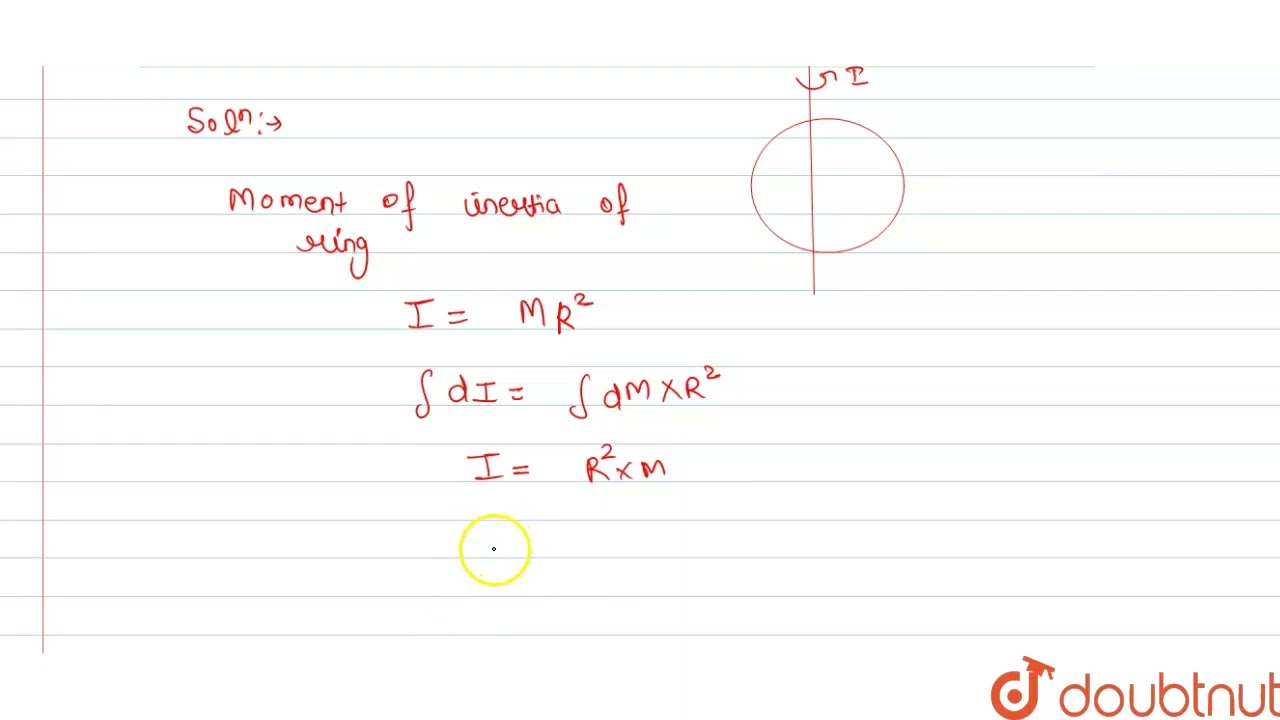 I
Soln:→
Moment of inertia of
ring
I = MR²
∫ dI = ∫ dM × R²
I = R² × M
doubtnut